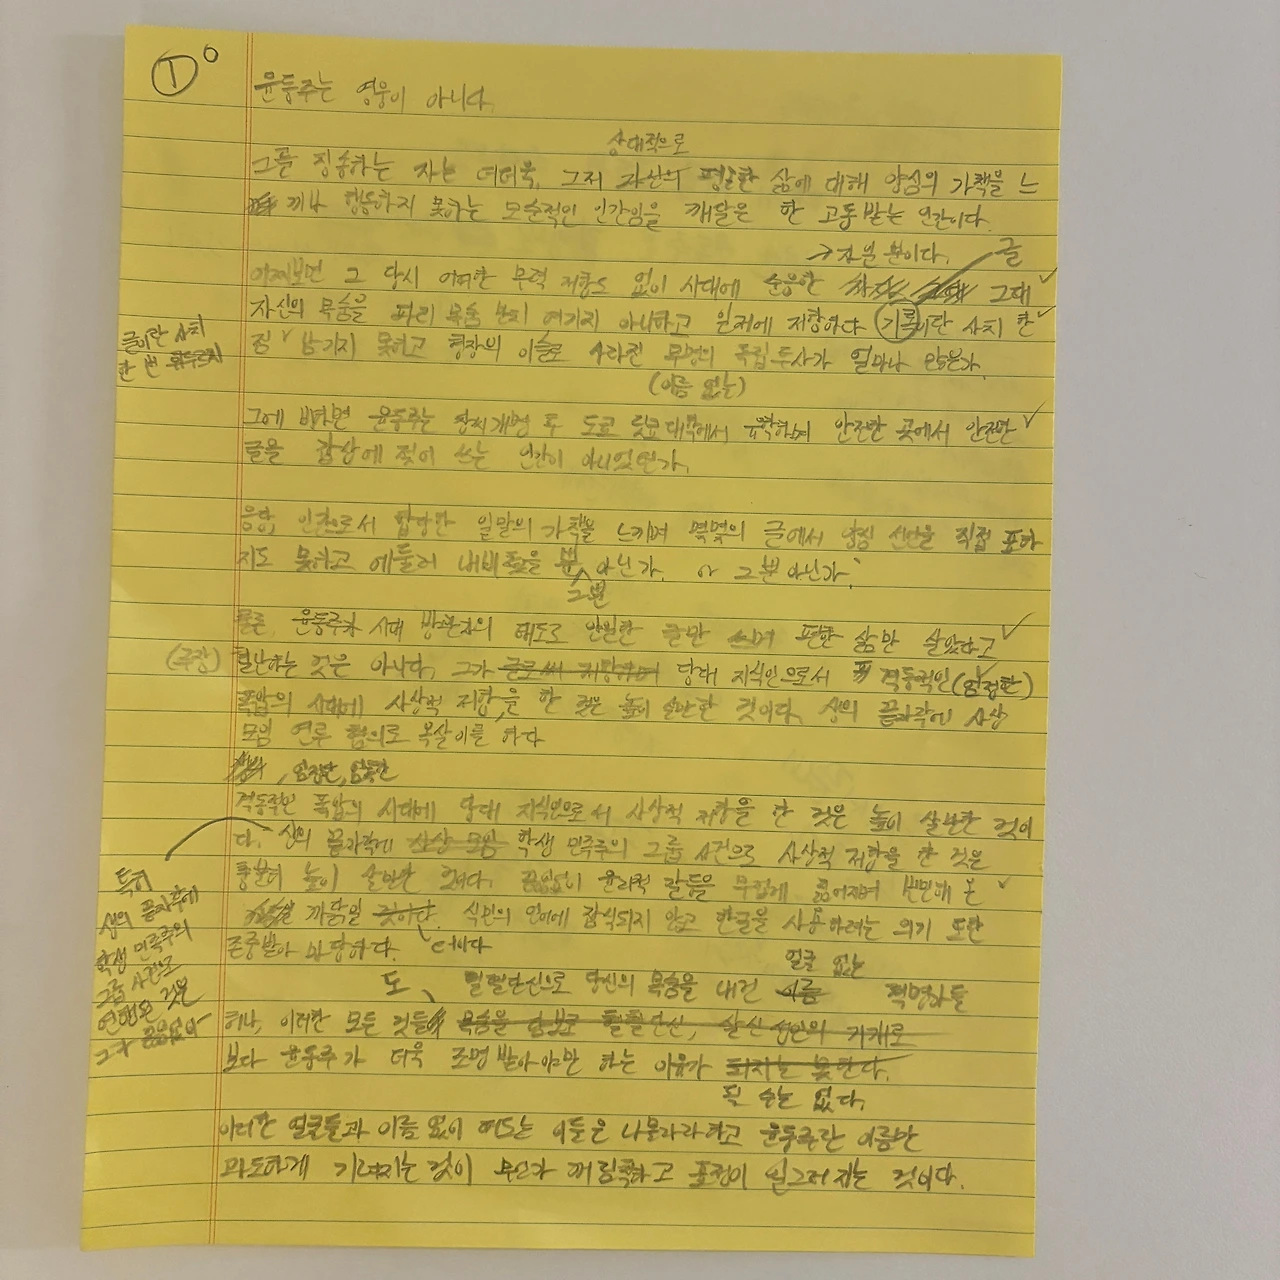 ① 0
윤동주는 영웅이 아니다.
상대적으로
그를 칭송하는 자는 더더욱. 그저 자신의 평탄한 삶에 대해 양심의 가책을 느
끼나 행동하지 못하는 모순적인 인간임을 깨달은 한 고통받는 인간이다.
→ 자일 뿐이다. 글
어찌보면 그 당시 어떠한 무력 저항도 없이 시대에 순응한 그대
자신의 목숨을 파리 목숨 보듯 여기지 아니하고 일제에 저항하다 기록이란 사치 한
글이란 사치
점 남기지 못하고 형장의 이슬로 사라진 무명의 독립투사가 얼마나 많은가.
한 번
(이름 없는)
그에 반하면 윤동주는 창씨개명 후 도쿄 릿쿄대학에서 유학하며 안전한 곳에서 안전한
글을 감상에 젖어 쓰는 인간이 아니었던가.
응당, 인간으로서 합당한 일말의 가책을 느끼며 몇몇의 글에서 양심 선언을 직접 표하
지도 못하고 에둘러 내비쳤을 뿐 아닌가. or 그뿐 아닌가.
그뿐
물론 윤동주가 시대 방관자의 태도로 안일한 글만 쓰며 편한 삶만 살았다고
(주장) 힐난하는 것은 아니다. 그가 글로써 저항하며 당대 지식인으로서 격동적인 (엄정한)
폭압의 시대에 사상적 저항을 한 것은 높이 살만한 것이다. 생의 끝자락에 사상
모임 연루 혐의로 옥살이를 하다
, 엄정한, 엄혹한
격동적인 폭압의 시대에 당대 지식인으로서 사상적 저항을 한 것은 높이 살만한 것이
다. 생의 끝자락에 사상 모임 학생 민족주의 그룹 사건으로 사상적 저항을 한 것은
특히
충분히 높이 살만한 것이다. 끊임없이 윤리적 갈등을 무겁게 짊어지며 번민해 온
생의 끝자락에
까닭일 것이다. 식민의 언어에 잠식되지 않고 한글을 사용하려는 의기 또한
학생 민족주의
존중받아 마땅하다. 터이다
그룹 사건으로
얼굴 없는
연행된 것은
도, 필필단신으로 당신의 목숨을 내건 이름 혁명가들
그가 끊임없이
허나, 이러한 모든 것들이 목숨을 담보로 필필단신, 살신성인의 기개로
보다 윤동주가 더욱 조명받아야만 하는 이유가 되지는 못한다.
될 수는 없다.
이러한 얼굴들과 이름 없이 떠도는 이들은 나몰라라하고 윤동주란 이름만
과도하게 기려지는 것이 무언가 꺼림칙하고 표정이 일그러지는 것이다.